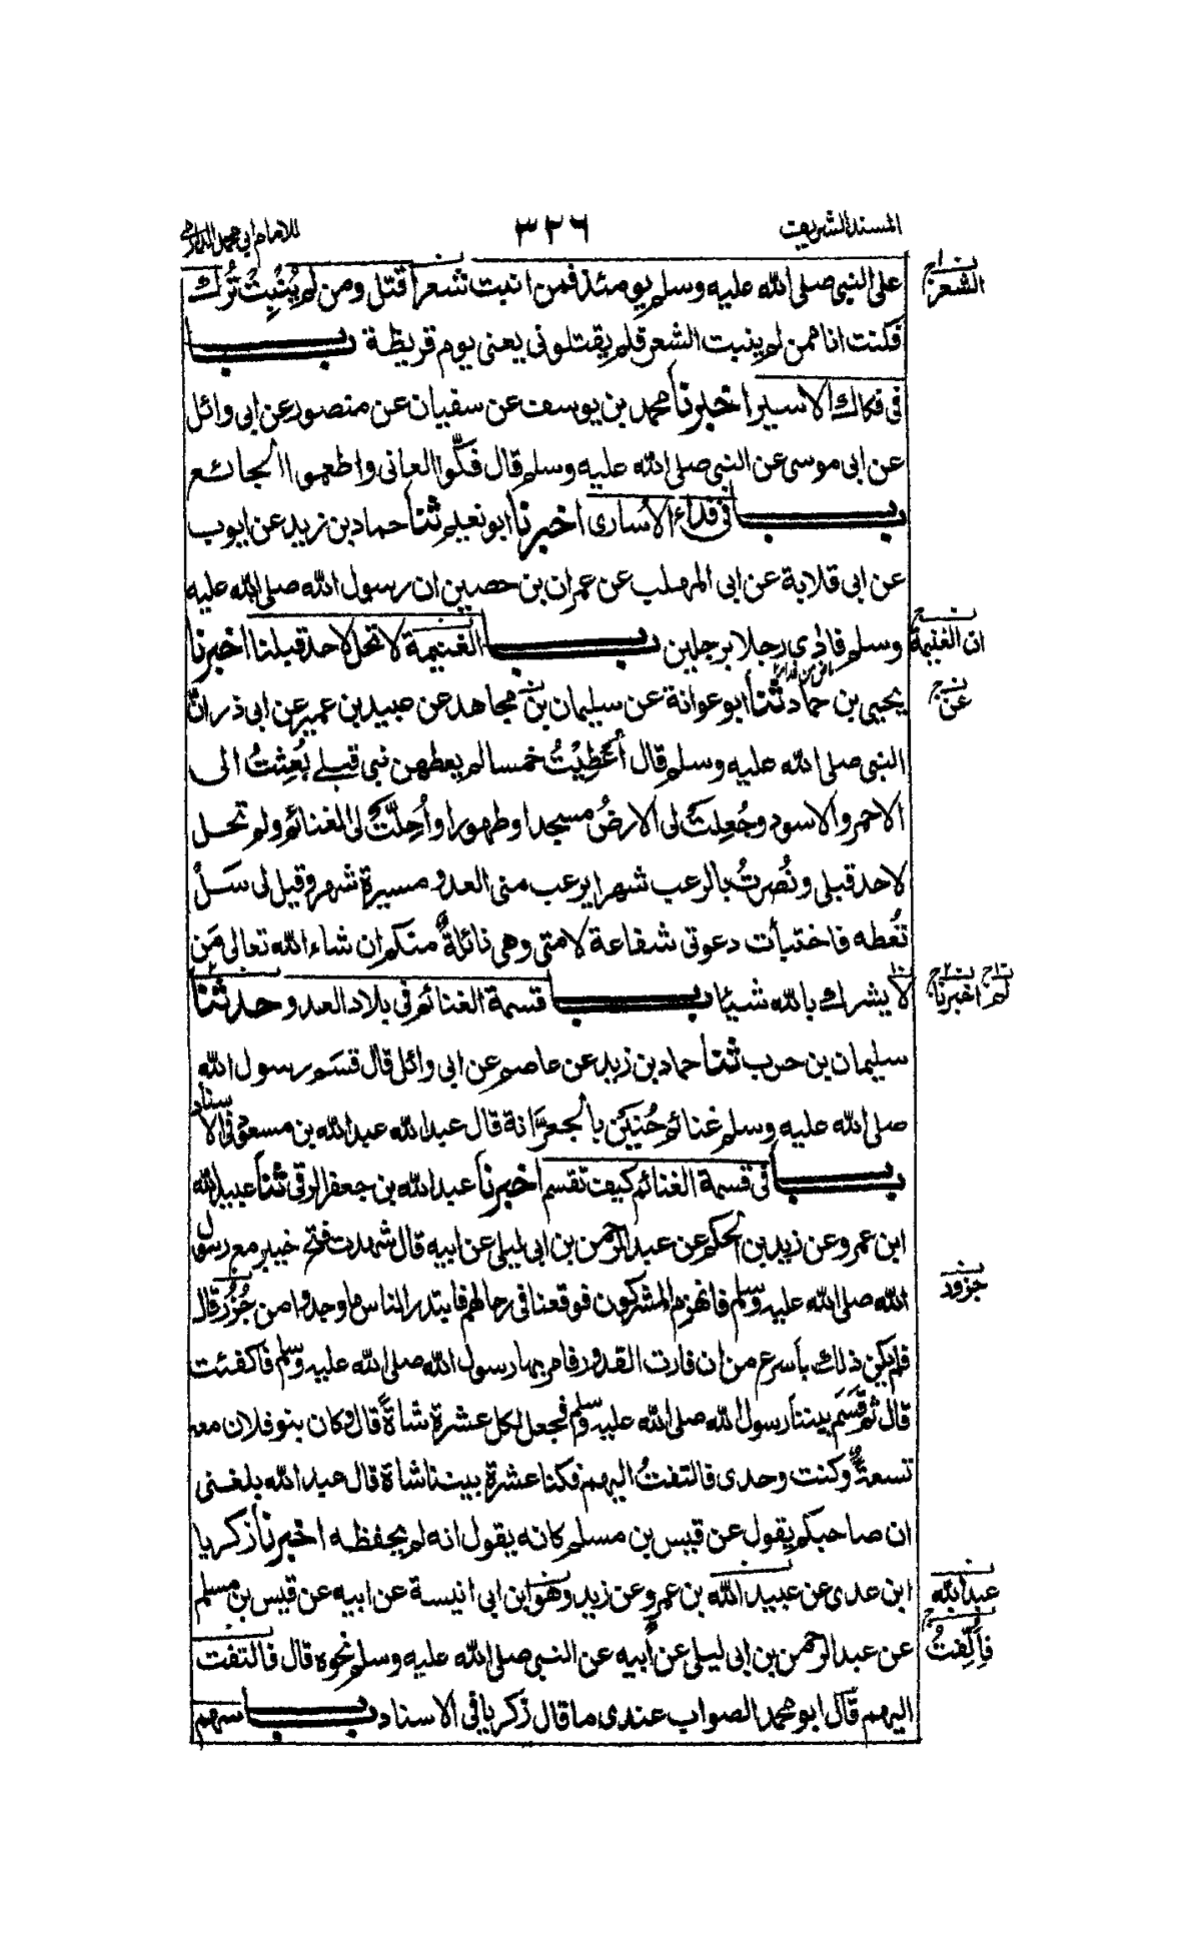 المسند الشريف
٣٢٦
للامام ابی محمد الدارمی
على النبى صلى الله عليه وسلم يومئذ فمن انبت شعرا قتل ومن لم يُنْبِتْ تُرك
فكنت انا ممن لم ينبت الشعر فلم يقتلونى يعنى يوم قريظة باب
فى فكاك الاسير اخبرنا محمد بن يوسف عن سفيان عن منصور عن ابى وائل
عن ابى موسى عن النبى صلى الله عليه وسلم قال فكّوا العانى واطعموا الجائع
باب فى فداء الاسارى اخبرنا ابو نعيم ثنا حماد بن زيد عن ايوب
عن ابى قلابة عن ابى المهلب عن عمران بن حصين ان رسول الله صلى الله عليه
وسلم فادى رجلا برجلين باب الغنيمة لا تحل لاحد قبلنا اخبرنا
يحيى بن حماد ثنا ابو عوانة عن سليمان بن مجاهد عن عبيد بن عمير عن ابى ذر انّ
النبى صلى الله عليه وسلم قال اُعْطِيْتُ خمسا لم يعطهن نبى قبلے بُعِثتُ الى
الاحمر والاسود وجُعِلتْ لى الارضُ مسجدا وطهورا واُحِلّتْ لى الغنائم ولم تحل
لاحد قبلى ونُصرتُ بالرعب شهرا يرعب منى العدو مسيرة شهر وقيل لى سَلْ
تُعطه فاختبأت دعوتى شفاعة لامتى وهى نائلةٌ منكم ان شاء الله تعالى مَن
لا يشرك بالله شيئا باب قسمة الغنائم فى بلاد العدو حدثنا
سليمان بن حرب ثنا حماد بن زيد عن عاصم عن ابى وائل قال قسَم رسول الله
صلى الله عليه وسلم غنائم حُنَيْن بالجعرَّانة قال عبد الله عبد الله بن مسعود فى الاسناد
باب فى قسمة الغنائم كيف تقسم اخبرنا عبد الله بن جعفر الرقى ثنا عبيد الله
ابن عمرو عن زيد بن الحكم عن عبد الرحمن بن ابى ليلى عن ابيه قال شهدت فتح خيبر مع رسول
الله صلى الله عليه وسلم فانهزم المشركون فوقعنا فى رحالهم فابتدر الناس ما وجدوا من جُزُر قال
فلم يكن ذلك باسرع من ان فارت القدور فامر بها رسول الله صلى الله عليه وسلم فاكفئت
قال ثم قَسَمَ بيننا رسول الله صلى الله عليه وسلم فجعل لكل عشرة شاةً قال وكان بنو فلان معه
تسعةٌ وكنت وحدى فالتفتُ اليهم فكنا عشرة بيننا شاة قال عبد الله بلغنى
ان صاحبكم يقول عن قيس بن مسلم كانه يقول انه لم يحفظه اخبرنا زكريا
ابن عدى عن عبيد الله بن عمرو عن زيد وهو ابن ابى انيسة عن ابيه عن قيس بن مسلم
عن عبد الرحمن بن ابى ليلى عن أبيه عن النبى صلى الله عليه وسلم نحوه قال فالتفت
اليهم قال ابو محمد الصواب عندى ما قال زكريا فى الاسناد باب سهم
الشعر
ان الغنيمة
عن
لم اخبرنا
جزور
عبد الله
فاُلِّفتُ